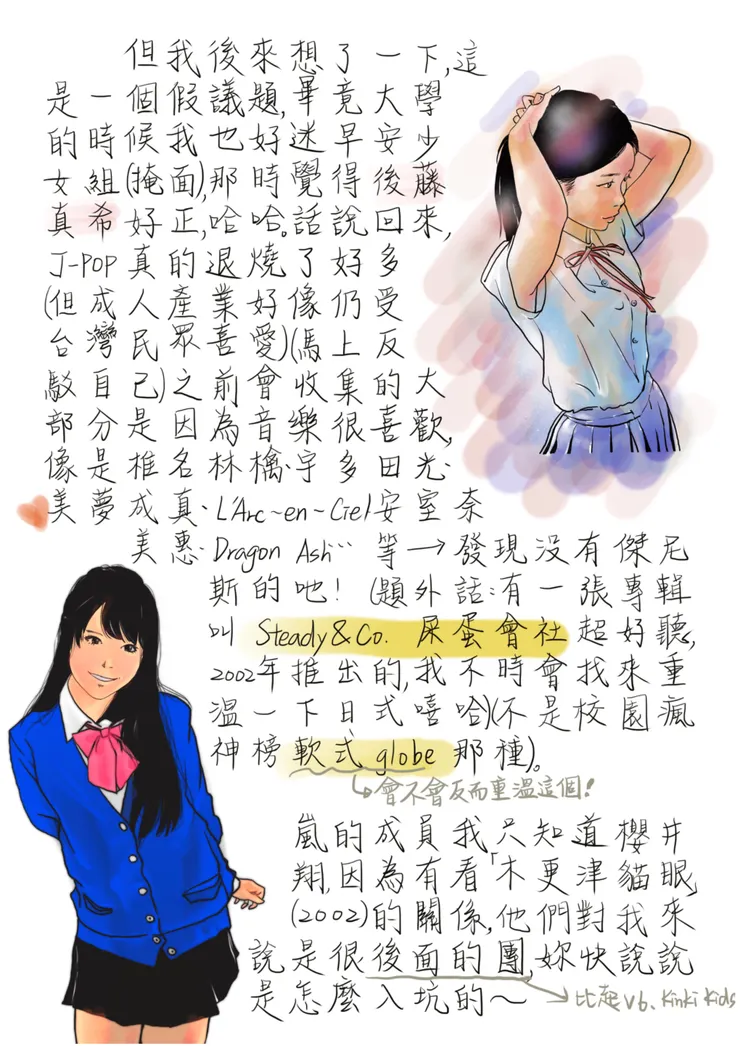 但我後來想了一下,這
是一個假議題,畢竟大學
的時候我也好迷早安少
女組(掩面),那時覺得後藤
真希好正,哈哈。話說回來,
J-POP真的退燒了好多
(但成人產業好像仍受
台灣民眾喜愛)(馬上反
駁自己)之前會收集的大
部分是因為音樂很喜歡,
像是椎名林檎·宇多田光·
美夢成真·L'Arc~en~Ciel安室奈
美惠·Dragon Ash… 等→發現沒有傑尼
斯的吔!(題外話:有一張專輯
叫 Steady&Co. 屎蛋會社超好聽,
2002年推出的,我不時會找來重
溫一下日式嘻哈)(不是校園瘋
神榜軟式globe那種)。
會不會反而重溫這個!
嵐的成員我只知道櫻井
翔,因為有看「木更津貓眼」
(2002)的關係,他們對我來
說是很後面的團,妳快說說
是怎麼入坑的～
比起V6、Kinki Kids